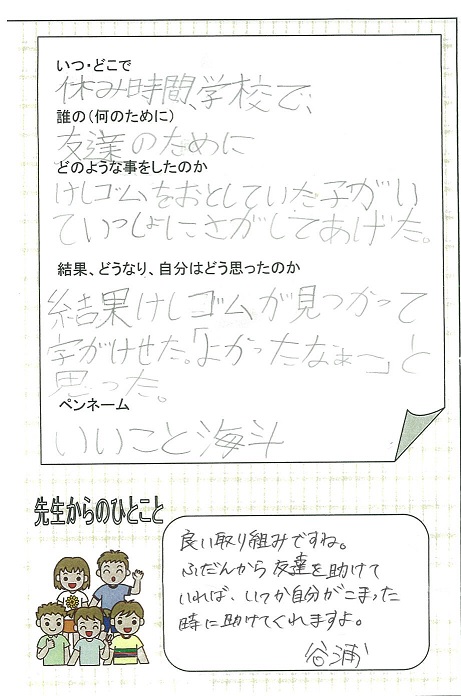 いつ・どこで
休み時間、学校で、
誰の(何のために)
友達のために
どのような事をしたのか
けしゴムをおとしていた子がい
ていっしょにさがしてあげた。
結果、どうなり、自分はどう思ったのか
結果けしゴムが見つかって
字がけせた。「よかったなぁ〜」と
思った。
ペンネーム
いいこと海斗
先生からのひとこと
良い取り組みですね。
ふだんから友達を助けて
いれば、いつか自分がこまった
時に助けてくれますよ。
谷浦